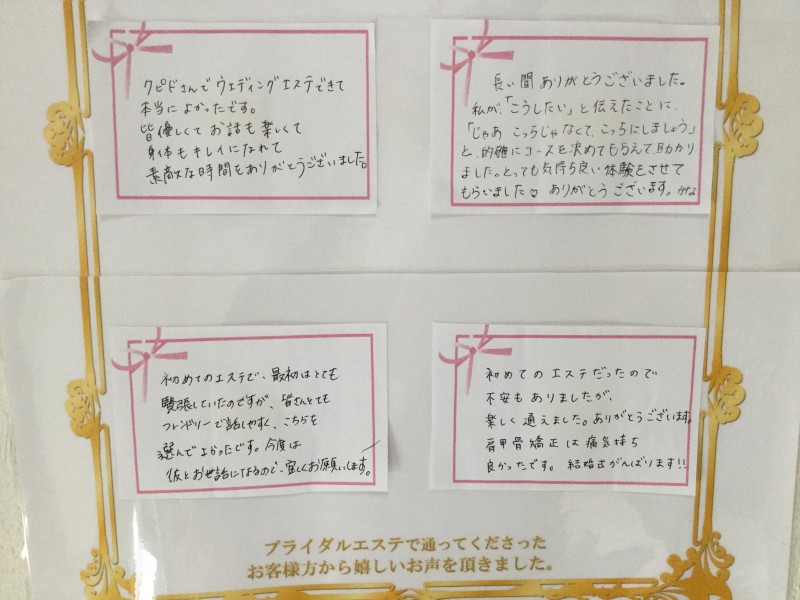 クピドさんでウェディングエステできて
本当によかったです。
皆優しくてお話も楽しくて
身体もキレイになれて
素敵な時間をありがとうございました。
長い間ありがとうございました。
私が、「こうしたい」と伝えたことに、
「じゃあこっちじゃなくて、こっちにしましょう」
と、的確にコースを決めてもらえて助かり
ました。とっても気持ち良い体験をさせて
もらいました♡ ありがとうございます。かな
初めてのエステで、最初はとても
緊張していたのですが、皆さんとても
フレンドリーで話しやすく、こちらを
選んでよかったです。今度は
彼とお世話になるので、宜しくお願いします。
初めてのエステだったので
不安もありましたが、
楽しく通えました。ありがとうございます。
肩甲骨矯正は痛気持ち
良かったです。結婚式がんばります!!
ブライダルエステで通ってくださった
お客様方から嬉しいお声を頂きました。